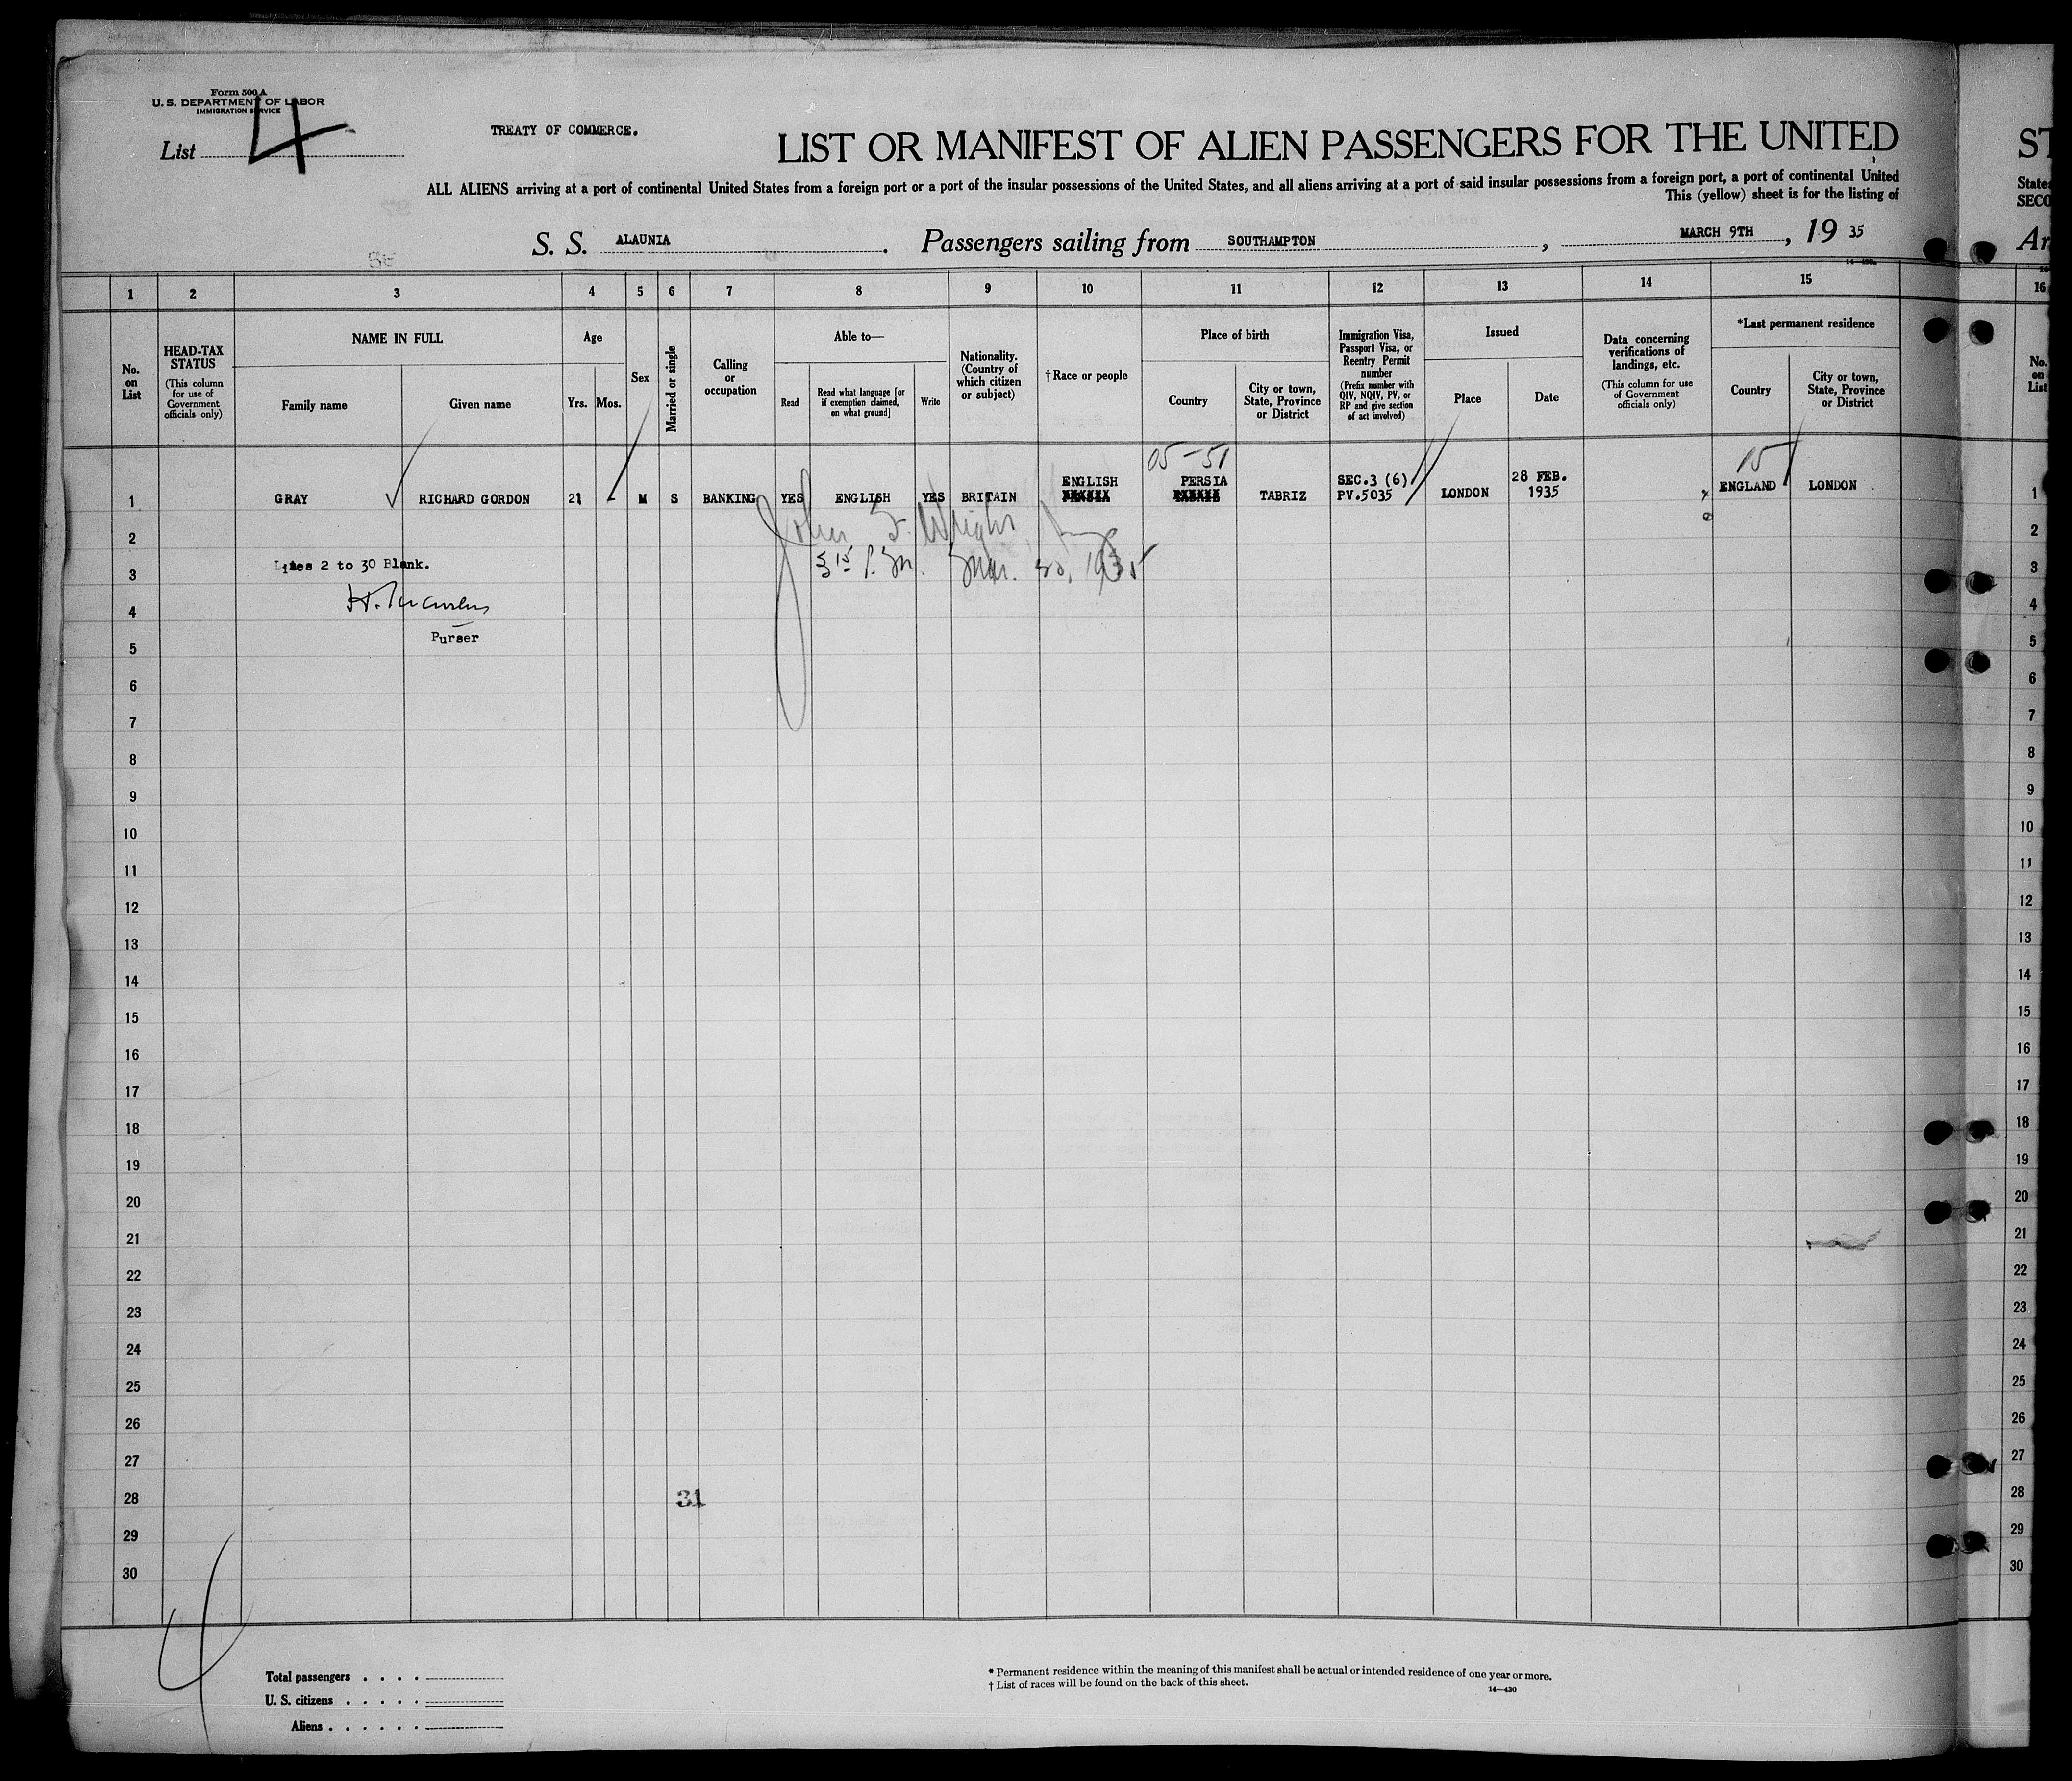 Form 500 A
U. S. DEPARTMENT OF LABOR
IMMIGRATION SERVICE
List 4
TREATY OF COMMERCE.
LIST OR MANIFEST OF ALIEN PASSENGERS FOR THE UNITED
ST
ALL ALIENS arriving at a port of continental United States from a foreign port or a port of the insular possessions of the United States, and all aliens arriving at a port of said insular possessions from a foreign port, a port of continental United
This (yellow) sheet is for the listing of
S. S. ALAUNIA. Passengers sailing from SOUTHAMPTON, MARCH 9TH, 19 35
1 2 3 4 5 6 7 8 9 10 11 12 13 14 15 16
No. on List
HEAD-TAX STATUS
(This column for use of Government officials only)
NAME IN FULL
Family name
Given name
Age
Yrs. Mos.
Sex
Married or single
Calling or occupation
Able to—
Read
Read what language [or if exemption claimed, on what ground]
Write
Nationality. (Country of which citizen or subject)
† Race or people
Place of birth
Country
City or town, State, Province or District
Immigration Visa, Passport Visa, or Reentry Permit number
(Prefix number with QIV, NQIV, PV, or RP and give section of act involved)
Issued
Place
Date
Data concerning verifications of landings, etc.
(This column for use of Government officials only)
*Last permanent residence
Country
City or town, State, Province or District
No. on List
05-51
15
ENGLISH PERSIA SEC.3 (6) 28 FEB.
1 GRAY RICHARD GORDON 21 - M S BANKING YES ENGLISH YES BRITAIN TABRIZ PV.5035 LONDON 1935 ENGLAND LONDON 1
John F. Wright
2 2
Lines 2 to 30 Blank.
Mar. 20, 1935
3 3
4 4
Purser
5 5
6 6
7 7
8 8
9 9
10 10
11 11
12 12
13 13
14 14
15 15
16 16
17 17
18 18
19 19
20 20
21 21
22 22
23 23
24 24
25 25
26 26
27 27
28 31 28
29 29
30 30
4
Total passengers . . . .
U. S. citizens . . . . .
Aliens . . . . . .
* Permanent residence within the meaning of this manifest shall be actual or intended residence of one year or more.
† List of races will be found on the back of this sheet.
14—430